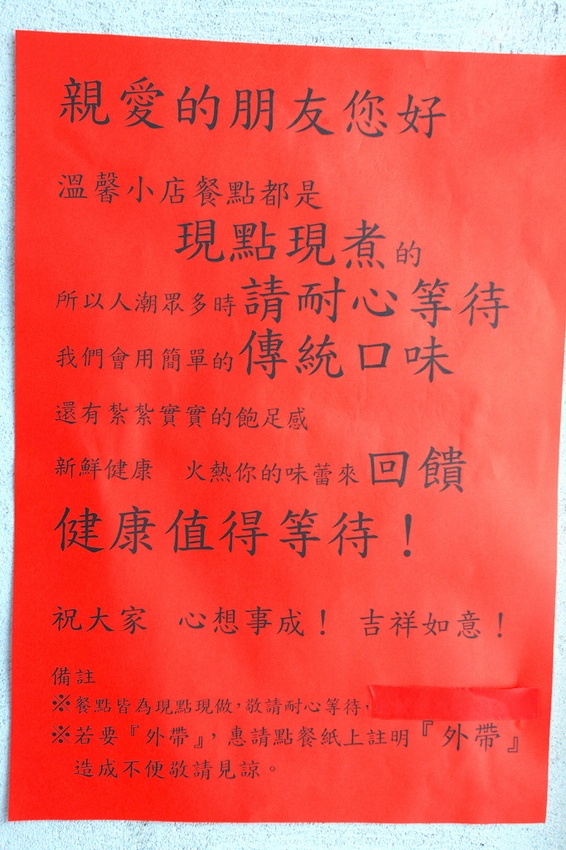 親愛的朋友您好
溫馨小店餐點都是
現點現煮的
所以人潮眾多時請耐心等待
我們會用簡單的傳統口味
還有紮紮實實的飽足感
新鮮健康　火熱你的味蕾來回饋
健康值得等待！
祝大家　心想事成！　吉祥如意！
備註
※餐點皆為現點現做，敬請耐心等待，
※若要『外帶』，惠請點餐紙上註明『外帶』
造成不便敬請見諒。